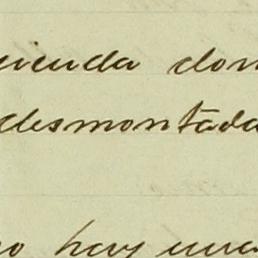 vienda don
desmontada
no hay una